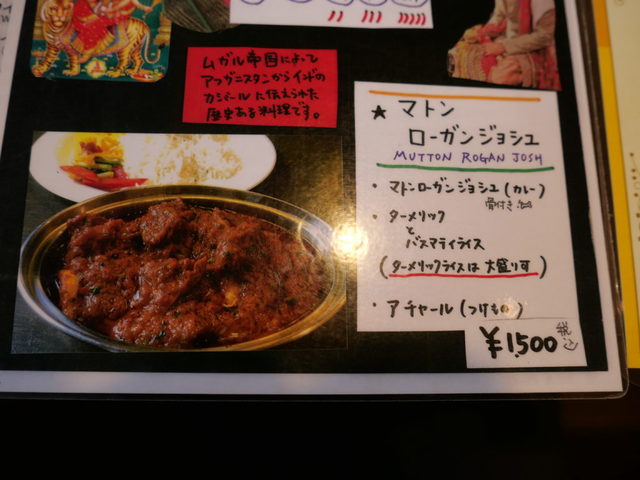 ムガル帝国によって
アフガニスタンからインドの
カシミールに伝えられた
歴史ある料理です。
★ マトン
ローガンジョシュ
MUTTON ROGAN JOSH
・マトンローガンジョシュ(カレー)
骨付き
・ターメリック
と
バスマティライス
(ターメリックライスは大盛り可)
・アチャール(つけもの)
¥1,500 税込